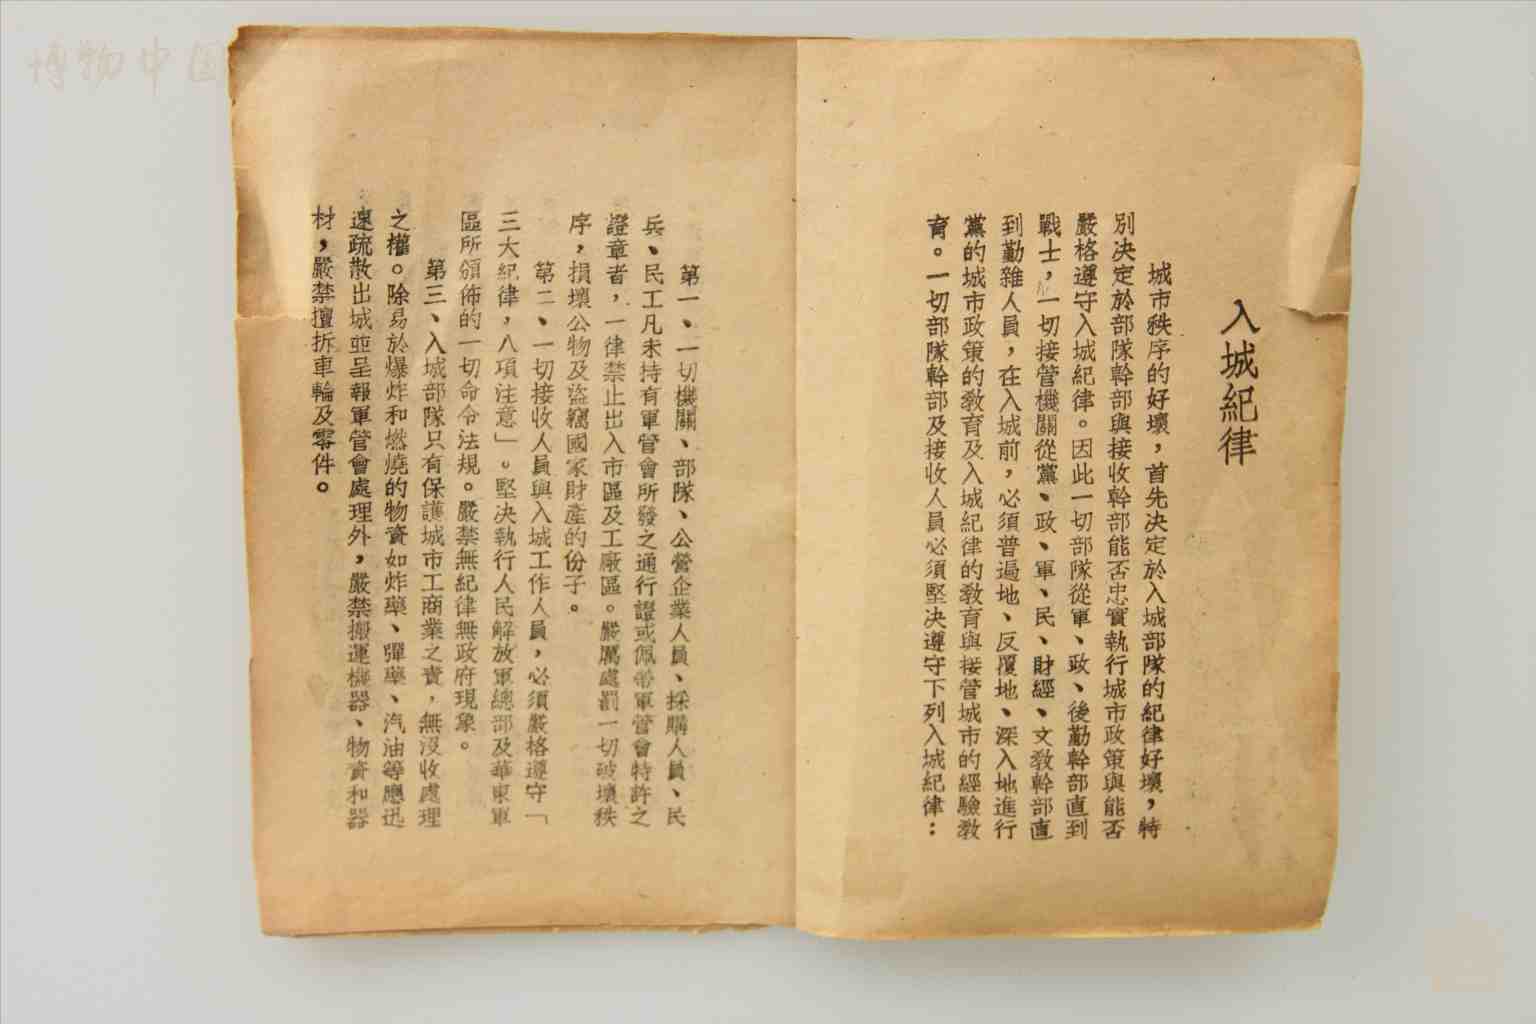 博物中国
入城紀律
城市秩序的好壞，首先决定於入城部隊的紀律好壞，特
別决定於部隊幹部與接收幹部能否忠實執行城市政策與能否
嚴格遵守入城紀律。因此一切部隊從軍、政、後勤幹部直到
戰士，一切接管機關從黨、政、軍、民、財經、文教幹部直
到勤雜人員，在入城前，必須普遍地、反覆地、深入地進行
黨的城市政策的教育及入城紀律的教育與接管城市的經驗教
育。一切部隊幹部及接收人員必須堅决遵守下列入城紀律：
第一、一切機關、部隊、公營企業人員、採購人員、民
兵、民工凡未持有軍管會所發之通行證或佩帶軍管會特許之
證章者，一律禁止出入市區及工廠區。嚴厲處罰一切破壞秩
序，損壞公物及盜竊國家財產的份子。
第二、一切接收人員與入城工作人員，必須嚴格遵守「
三大紀律，八項注意」。堅决執行人民解放軍總部及華東軍
區所頒佈的一切命令法規。嚴禁無紀律無政府現象。
第三、入城部隊只有保護城市工商業之責，無沒收處理
之權。除易於爆炸和燃燒的物資如炸藥、彈藥、汽油等應迅
速疏散出城並呈報軍管會處理外，嚴禁搬運機器、物資和器
材，嚴禁擅拆車輪及零件。